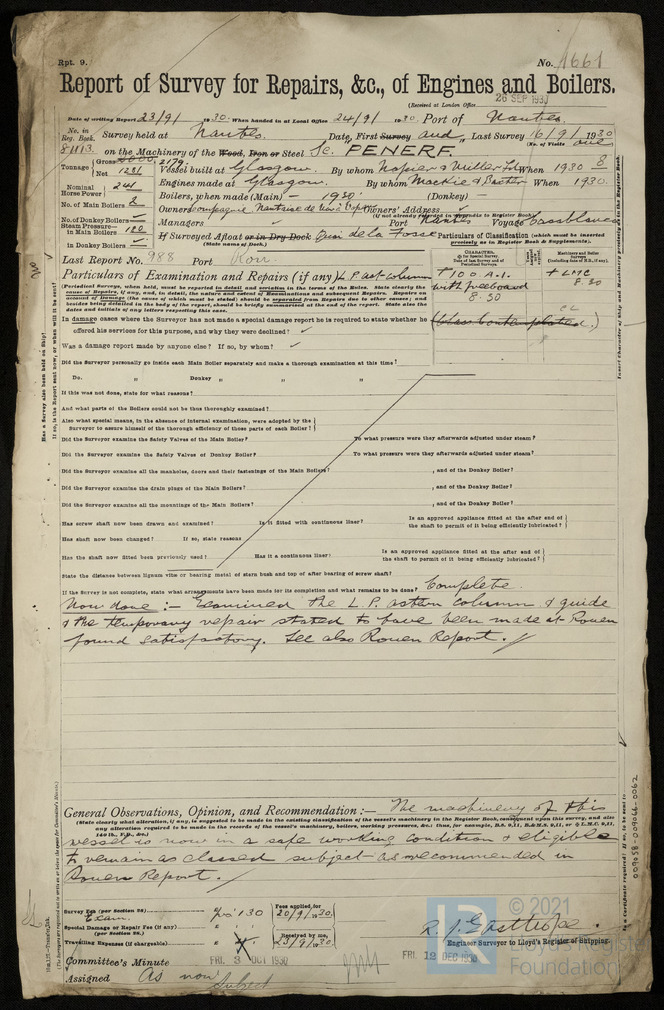 Rpt. 9.
No. 1661
Report of Survey for Repairs, &c., of Engines and Boilers.
(Received at London Office 26 SEP 1930
Date of writing Report 23/9/ 1930. When handed in at Local Office 24/9/ 1930. Port of Nantes.
No. in Reg. Book. Survey held at Nantes. Date, First Survey and Last Survey 16/9/ 1930
(No. of Visits one
81113. on the Machinery of the Wood, Iron or Steel Sc. PENERF.
Tonnage Gross 2179. Vessel built at Glasgow. By whom Napier & Miller Ld When 1930 8
Net 1281
Nominal Horse Power 241 Engines made at Glasgow. By whom Mackie & Baxter When 1930.
No. of Main Boilers 2 Boilers, when made (Main) 1930. (Donkey)
Owners Compagnie Nantaise de Owners' Address
(if not already recorded in Appendix to Register Book.)
No. of Donkey Boilers Managers Port Nantes Voyage Casablanca
Steam Pressure in Main Boilers 180 If Surveyed Afloat or in Dry Dock Quai de la Fosse
(State name of Dock.)
in Donkey Boilers
Particulars of Classification (which must be inserted precisely as in Register Book & Supplements).
Last Report No. 988 Port Rou.
CHARACTER.
Particulars of Examination and Repairs (if any) L.P. ast. column
+ 100 A.1.
with freeboard
8.30
+ LMC
8.30
(Class Contemplated.)
(Periodical Surveys, when held, must be reported in detail and seriatim in the terms of the Rules. State clearly the cause of Repairs, if any, and, in detail, the nature and extent of Examinations and subsequent Repairs. Repairs on account of Damage (the cause of which must be stated) should be separated from Repairs due to other causes; and besides being detailed in the body of the report, should be briefly summarised at the end of the report. State also the dates and initials of any letters respecting this case.
In damage cases where the Surveyor has not made a special damage report he is required to state whether he offered his services for this purpose, and why they were declined?
Was a damage report made by anyone else? If so, by whom?
Did the Surveyor personally go inside each Main Boiler separately and make a thorough examination at this time?
Do. " Donkey " " "
If this was not done, state for what reasons?
And what parts of the Boilers could not be thus thoroughly examined?
Also what special means, in the absence of internal examination, were adopted by the Surveyor to assure himself of the thorough efficiency of those parts of each Boiler?
Did the Surveyor examine the Safety Valves of the Main Boiler? To what pressure were they afterwards adjusted under steam?
Did the Surveyor examine the Safety Valves of Donkey Boiler? To what pressure were they afterwards adjusted under steam?
Did the Surveyor examine all the manholes, doors and their fastenings of the Main Boilers? , and of the Donkey Boiler?
Did the Surveyor examine the drain plugs of the Main Boilers? , and of the Donkey Boiler?
Did the Surveyor examine all the mountings of the Main Boilers? , and of the Donkey Boiler?
Has screw shaft now been drawn and examined? Is it fitted with continuous liner? Is an approved appliance fitted at the after end of the shaft to permit of it being efficiently lubricated?
Has shaft now been changed? If so, state reasons
Has the shaft now fitted been previously used? Has it a continuous liner? Is an approved appliance fitted at the after end of the shaft to permit of it being efficiently lubricated?
State the distance between lignum vitæ or bearing metal of stern bush and top of after bearing of screw shaft?
If the Survey is not complete, state what arrangements have been made for its completion and what remains to be done? Complete.
Now done:- Examined the L.P. astern column & guide
& the temporary repair stated to have been made at Rouen
found satisfactory. See also Rouen Report.
General Observations, Opinion, and Recommendation:— The machinery of this
vessel is now in a safe working condition & eligible
to remain as classed subject as recommended in
Rouen Report.
Survey Fee (per Section 28) Exam. 130 Fees applied for 20/9/30.
Special Damage or Repair Fee (if any)
(per Section 28.)
Travelling Expenses (if chargeable) Received by me, 23/9/30.
Engineer Surveyor to Lloyd's Register of Shipping.
Committee's Minute FRI. 3 OCT 1930 FRI. 12 DEC 1930
Assigned As now
Subject
© 2021
Lloyd's Register
Foundation
009058-009066-0062